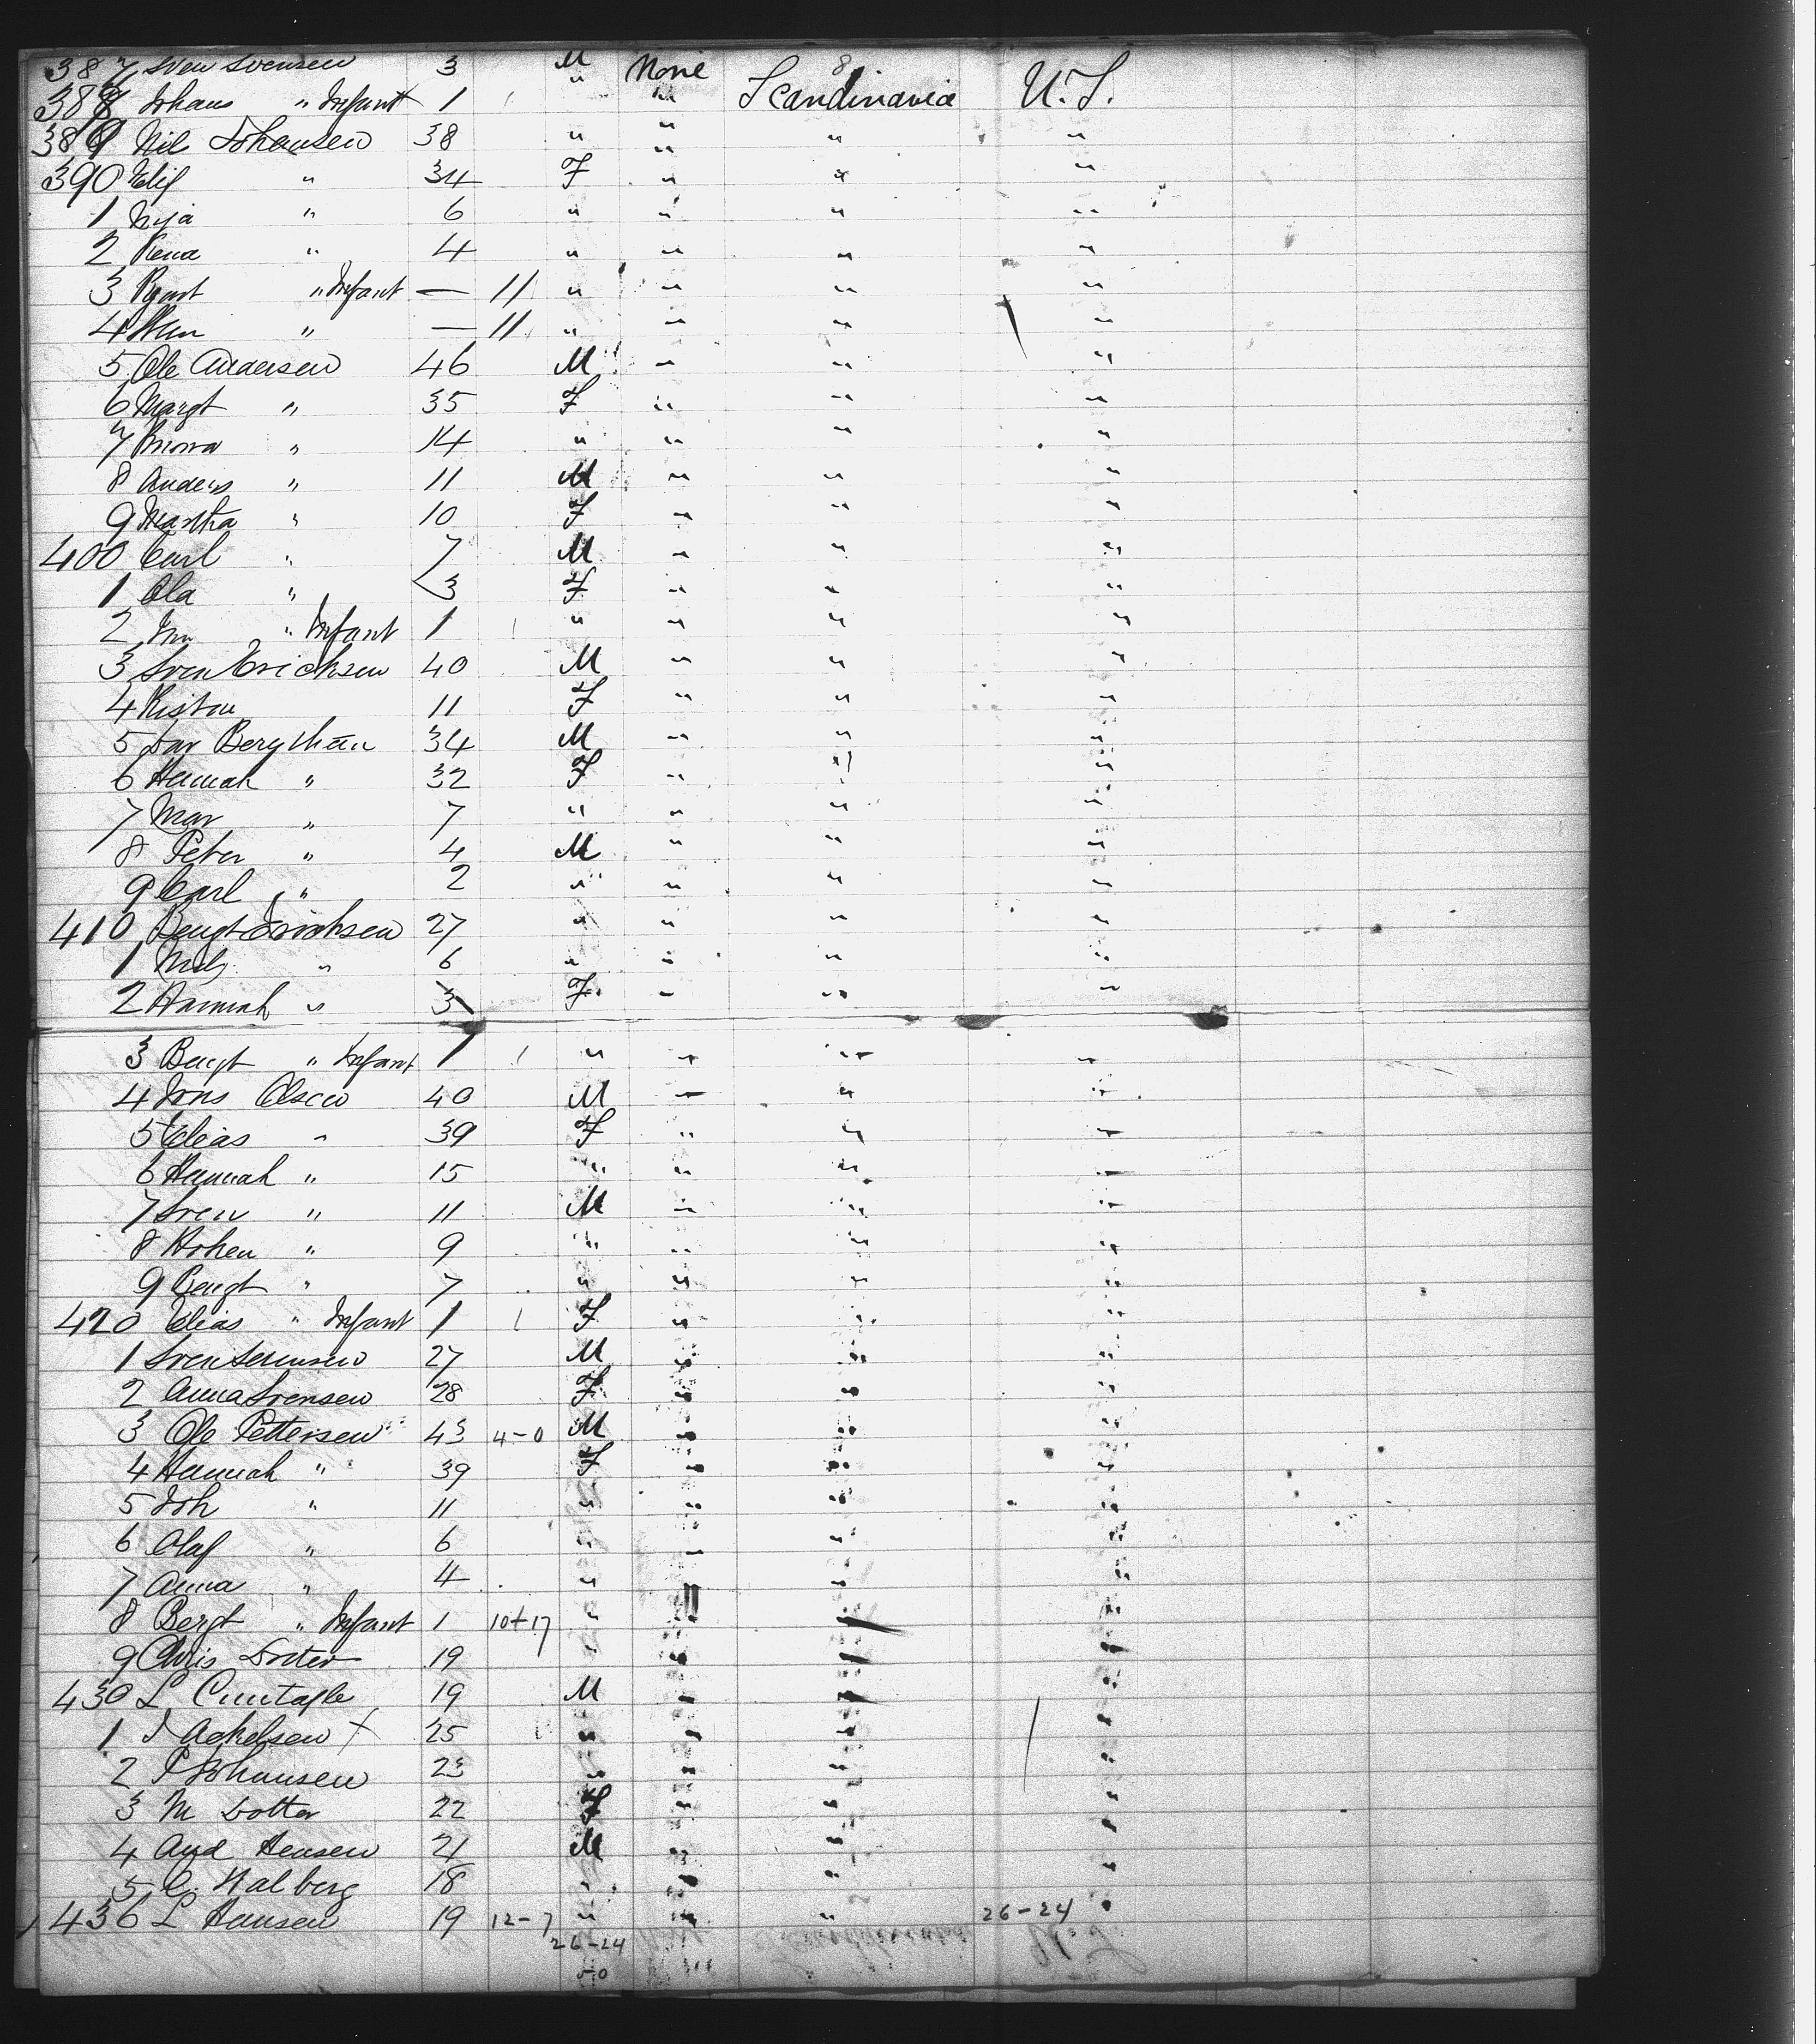 387 Sven Svensen 3 M None 8
388 Johans " Infant 1 " " Scandinavia U.S.
389 Nil Johansen 38 " " " "
390 Elif " 34 F " " "
1 Nija " 6 " " " "
2 Kena " 4 " " " "
3 " Infant — 11 " " " "
4 " — 11 " " " "
5 Ole Andersen 46 M " " "
6 Margt " 35 F " " "
7 " 14 " " " "
8 Anders " 11 M " " "
9 Martha " 10 F " " "
400 Carl " 7 M " " "
1 Ola " 3 F " " "
2 " Infant 1 " " " "
3 Sven Erichsen 40 M " " "
4 11 F " " "
5 34 M " " "
6 Hannah " 32 F " " "
7 Mar " 7 " " " "
8 Peter " 4 M " " "
9 Carl " 2 " " " "
410 Bengt Erichsen 27 " " " "
1 Nils " 6 " " " "
2 Hannah " 3 F " " "
3 Bengt " Infant 1 " " " "
4 Jons Olsen 40 M " " "
5 Elias " 39 F " " "
6 Hannah " 15 " " " "
7 Sven " 11 M " " "
8 " 9 " " " "
9 Bengt " 7 " " " "
420 Elias " Infant 1 F " " "
1 Sven 27 M " " "
2 Anna Svensen 28 F " " "
3 Ole Pettersen 43 4-0 M " " "
4 Hannah " 39 F " " "
5 Joh " 11 " " " "
6 Olaf " 6 " " " "
7 Anna " 4 " " " "
8 Bergt " Infant 1 10+17 " " " "
9 Chris 19 " " " "
430 L 19 M " " "
1 J Ackelsen X 25 " " " "
2 P Johansen 23 " " " "
3 M Dotter 22 F " " "
4 And Hensen 21 M " " "
5 C. Halberg 18 " " " "
436 L Hansen 19 12-7 " " " 26-24 "
26-24
50